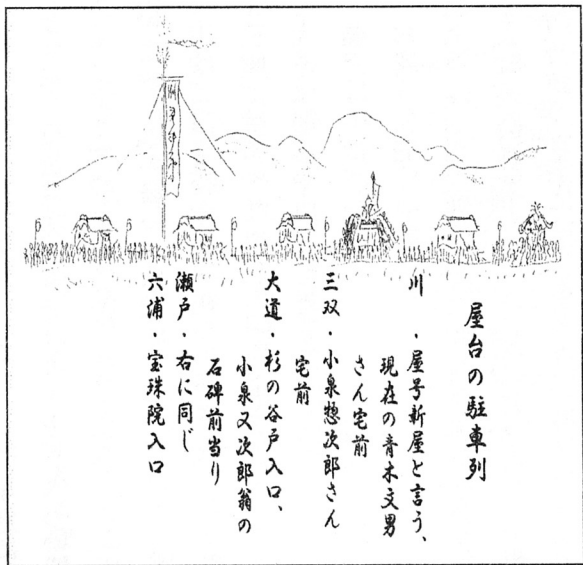 屋台の駐車列
川　・屋号新屋と言う、
現在の青木文男
さん宅前
三双・小泉惣次郎さん
宅前
大道・杉の谷戸入口、
小泉又次郎翁の
石碑前当り
瀬戸・右に同じ
六浦・宝珠院入口